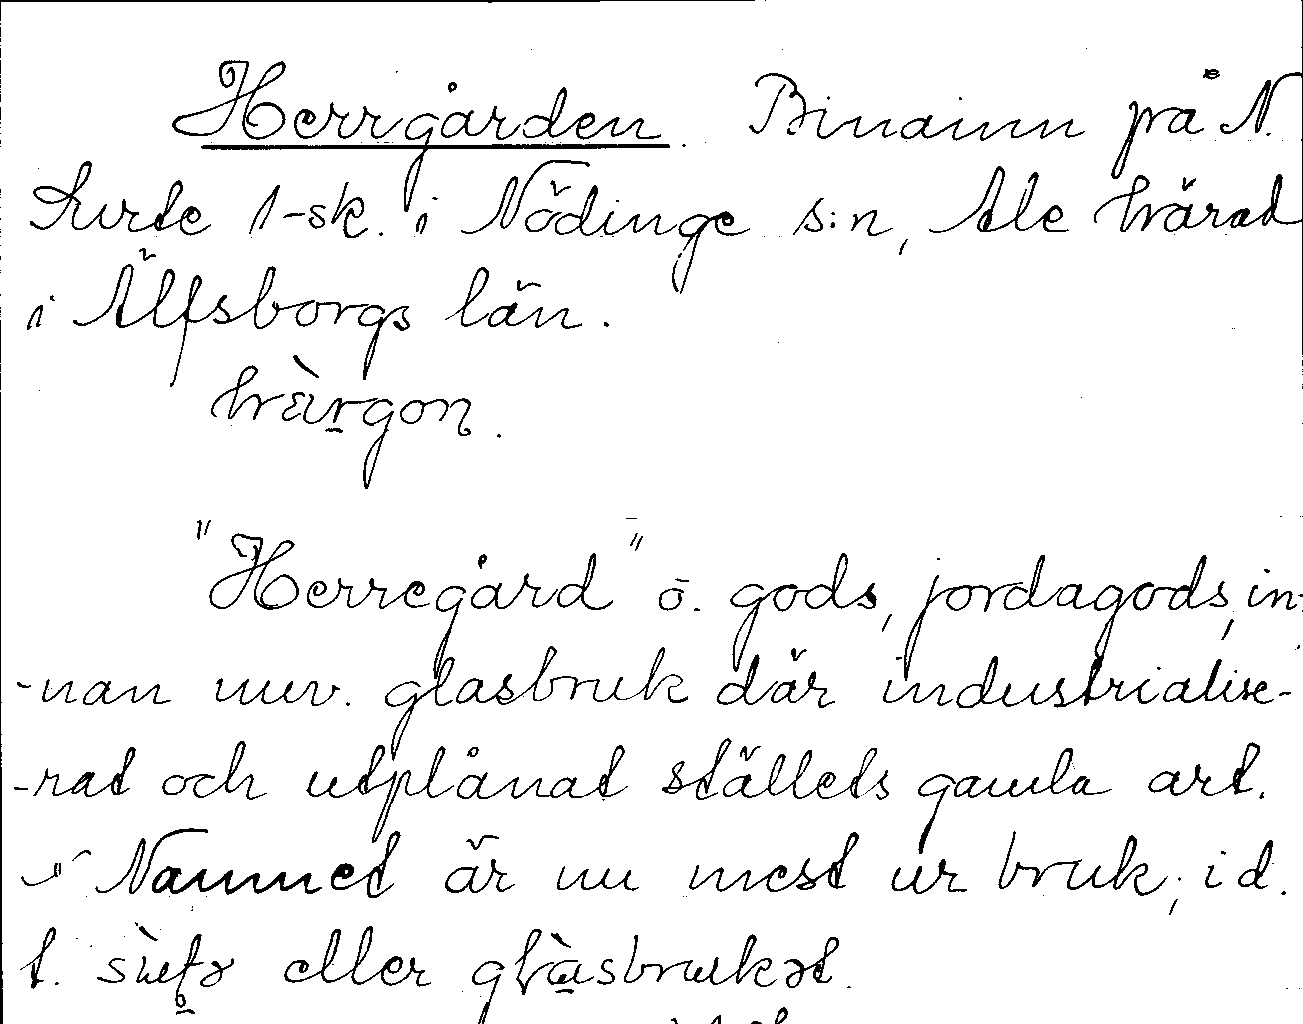 Herrgården. Binamn på N.
Surte 1-sk. i Nödinge s:n, Ale härad
i Älfsborgs län.
hærgon.
"Herregård" o. gods, jordagods, in-
-nan nuv. glasbruk där industrialise-
-rat och utplånat ställets gamla art.
Namnet är nu mest ur bruk, i d.
t. eller glasbrukət.